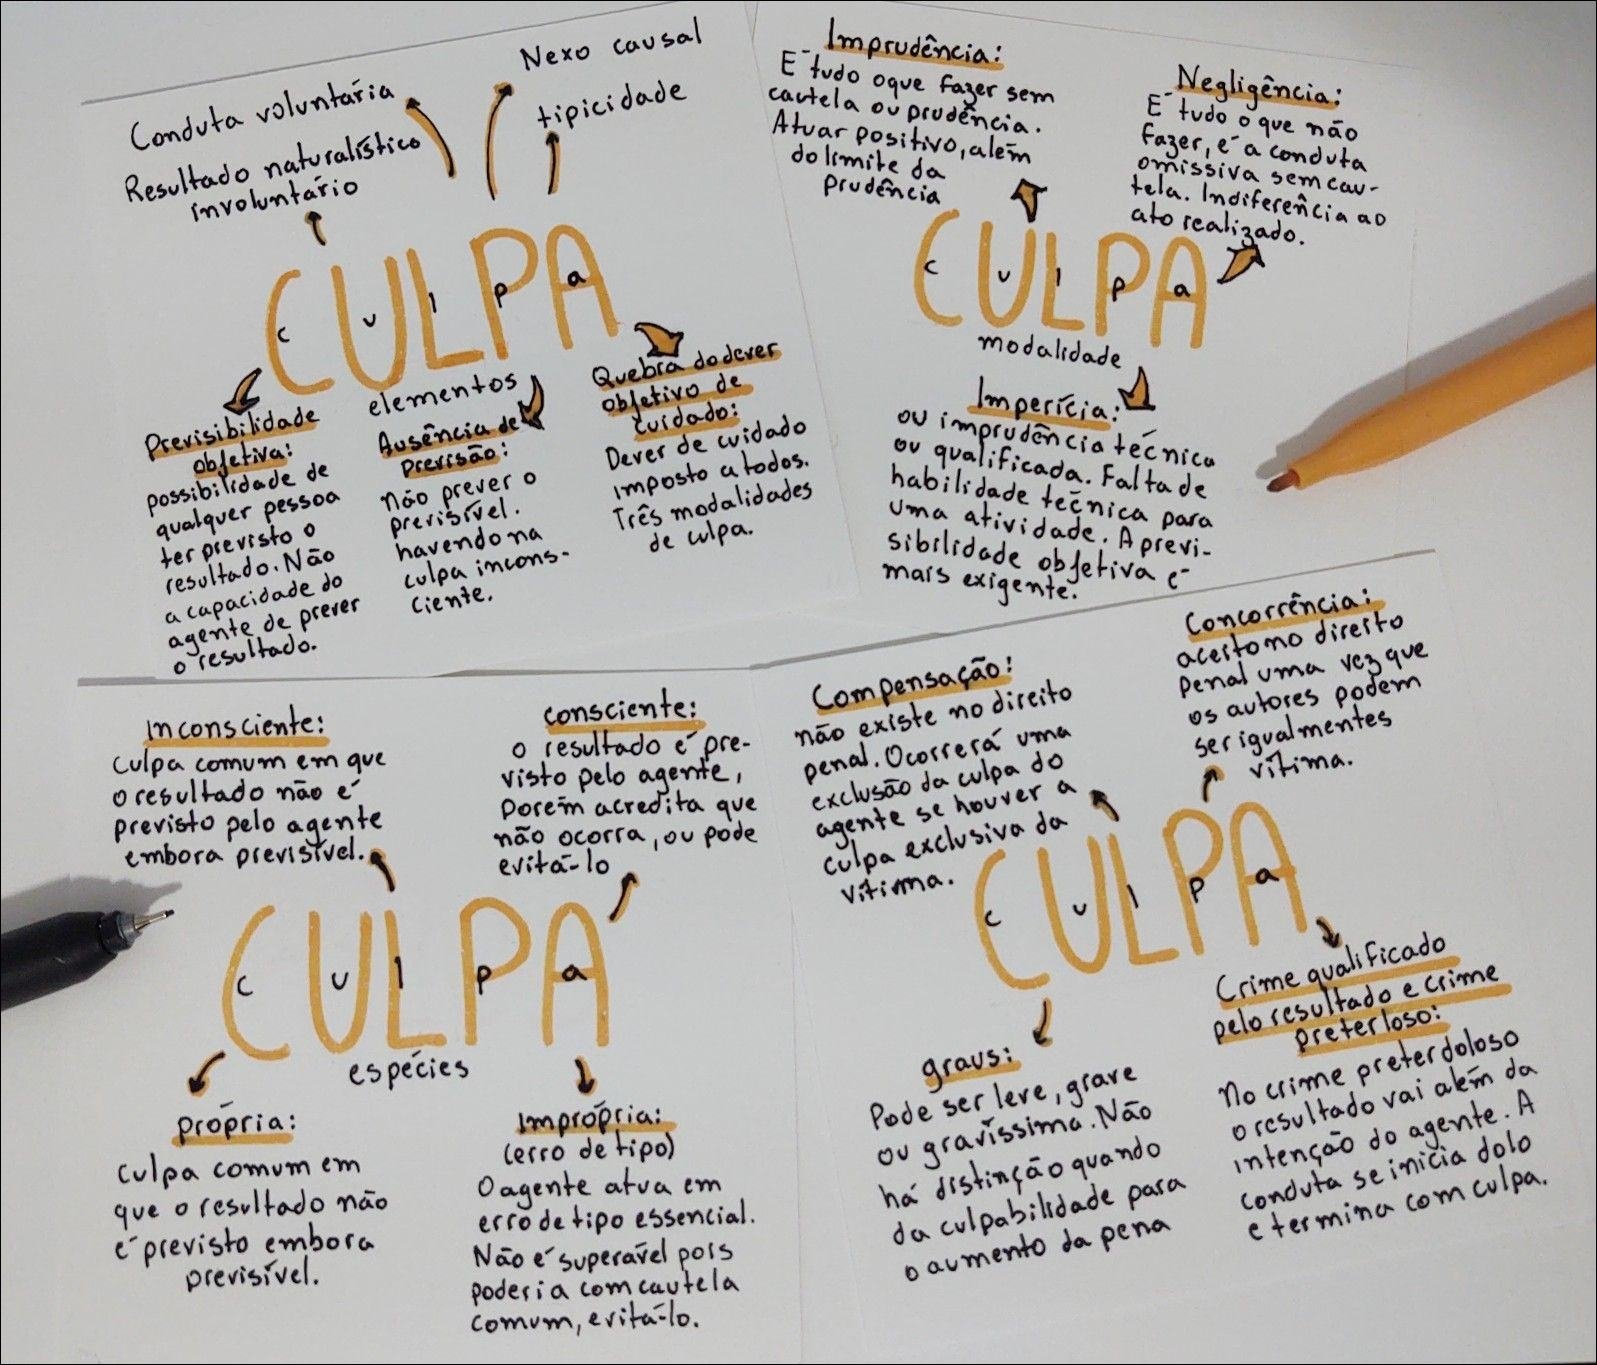 Nexo causal
Conduta voluntária
tipicidade
Resultado naturalístico
involuntário
CULPA
c u l p a
elementos
Previsibilidade
objetiva:
possibilidade de
qualquer pessoa
ter previsto o
resultado. Não
a capacidade do
agente de prever
o resultado.
Ausência de
previsão:
não prever o
previsível.
havendo na
culpa incons-
ciente.
Quebra do dever
objetivo de
cuidado:
Dever de cuidado
imposto a todos.
Três modalidades
de culpa.
Imprudência:
É tudo oque fazer sem
cautela ou prudência.
Atuar positivo, além
do limite da
prudência
Negligência:
É tudo o que não
fazer, é a conduta
omissiva sem cau-
tela. Indiferência ao
ato realizado.
CULPA
c u l p a
modalidade
Imperícia:
ou imprudência técnica
ou qualificada. Falta de
habilidade técnica para
uma atividade. A previ-
sibilidade objetiva é
mais exigente.
inconsciente:
culpa comum em que
o resultado não é
previsto pelo agente
embora previsível.
consciente:
o resultado é pre-
visto pelo agente,
porém acredita que
não ocorra, ou pode
evitá-lo
CULPA
c u l p a
espécies
própria:
culpa comum em
que o resultado não
é previsto embora
previsível.
imprópria:
(erro de tipo)
O agente atua em
erro de tipo essencial.
Não é superável pois
poderia com cautela
comum, evitá-lo.
Compensação:
não existe no direito
penal. Ocorrerá uma
exclusão da culpa do
agente se houver a
culpa exclusiva da
vítima.
Concorrência:
aceito no direito
penal uma vez que
os autores podem
ser igualmentes
vítima.
CULPA
c u l p a
graus:
Pode ser leve, grave
ou gravíssima. Não
há distinção quando
da culpabilidade para
o aumento da pena
Crime qualificado
pelo resultado e crime
preterloso:
No crime preterdoloso
o resultado vai além da
intenção do agente. A
conduta se inicia dolo
e termina com culpa.